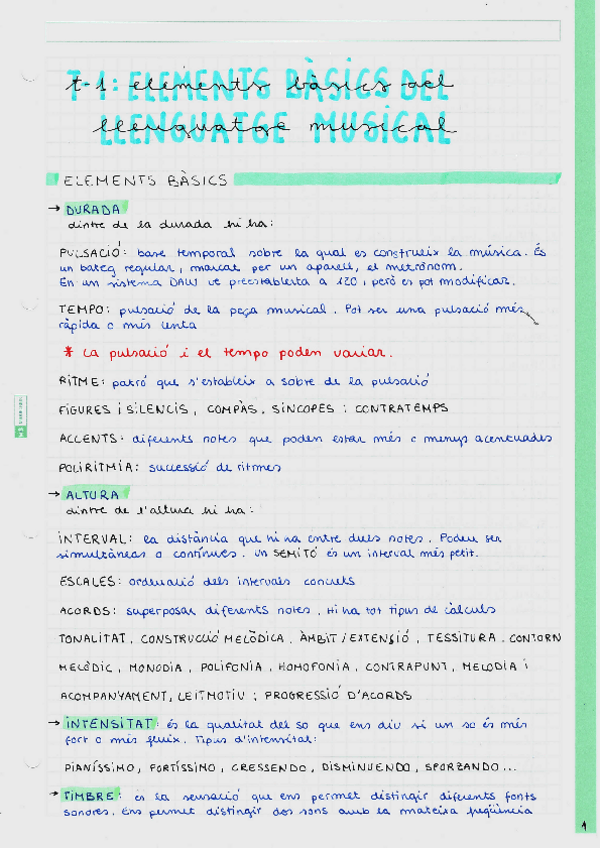 T-1: ELEMENTS BÀSICS DEL
LLENGUATGE MUSICAL
ELEMENTS BÀSICS
→ DURADA
dintre de la durada hi ha:
PULSACIÓ: base temporal sobre la qual es construeix la música. És
un bateg regular, marcat per un aparell, el metrònom.
En un sistema DAW ve preestablerta a 120, però es pot modificar.
TEMPO: pulsació de la peça musical. Pot ser una pulsació més
ràpida o més lenta
* La pulsació i el tempo poden variar.
RITME: patró que s'estableix a sobre de la pulsació
FIGURES I SILENCIS, COMPÀS, SÍNCOPES I CONTRATEMPS
ACCENTS: diferents notes que poden estar més o menys accentuades
POLIRITMIA: successió de ritmes
→ ALTURA
dintre de l'altura hi ha:
INTERVAL: la distància que hi ha entre dues notes. Poden ser
simultànees o contínues. Un SEMITÓ és un interval més petit.
ESCALES: ordenació dels intervals concrets
ACORDS: superposar diferents notes. Hi ha tot tipus de càlculs
TONALITAT, CONSTRUCCIÓ MELÒDICA, ÀMBIT I EXTENSIÓ, TESSITURA, CONTORN
MELÒDIC, MONODIA, POLIFONIA, HOMOFONIA, CONTRAPUNT, MELODIA I
ACOMPANYAMENT, LEITMOTIV I PROGRESSIÓ D'ACORDS
→ INTENSITAT: és la qualitat del so que ens diu si un so és més
fort o més fluix. Tipus d'intensitat:
PIANÍSSIMO, FORTÍSSIMO, CRESSENDO, DISMINUENDO, SFORZANDO...
→ TIMBRE: és la sensació que ens permet distingir diferents fonts
sonores. Ens permet distingir dos sons amb la mateixa freqüència
1